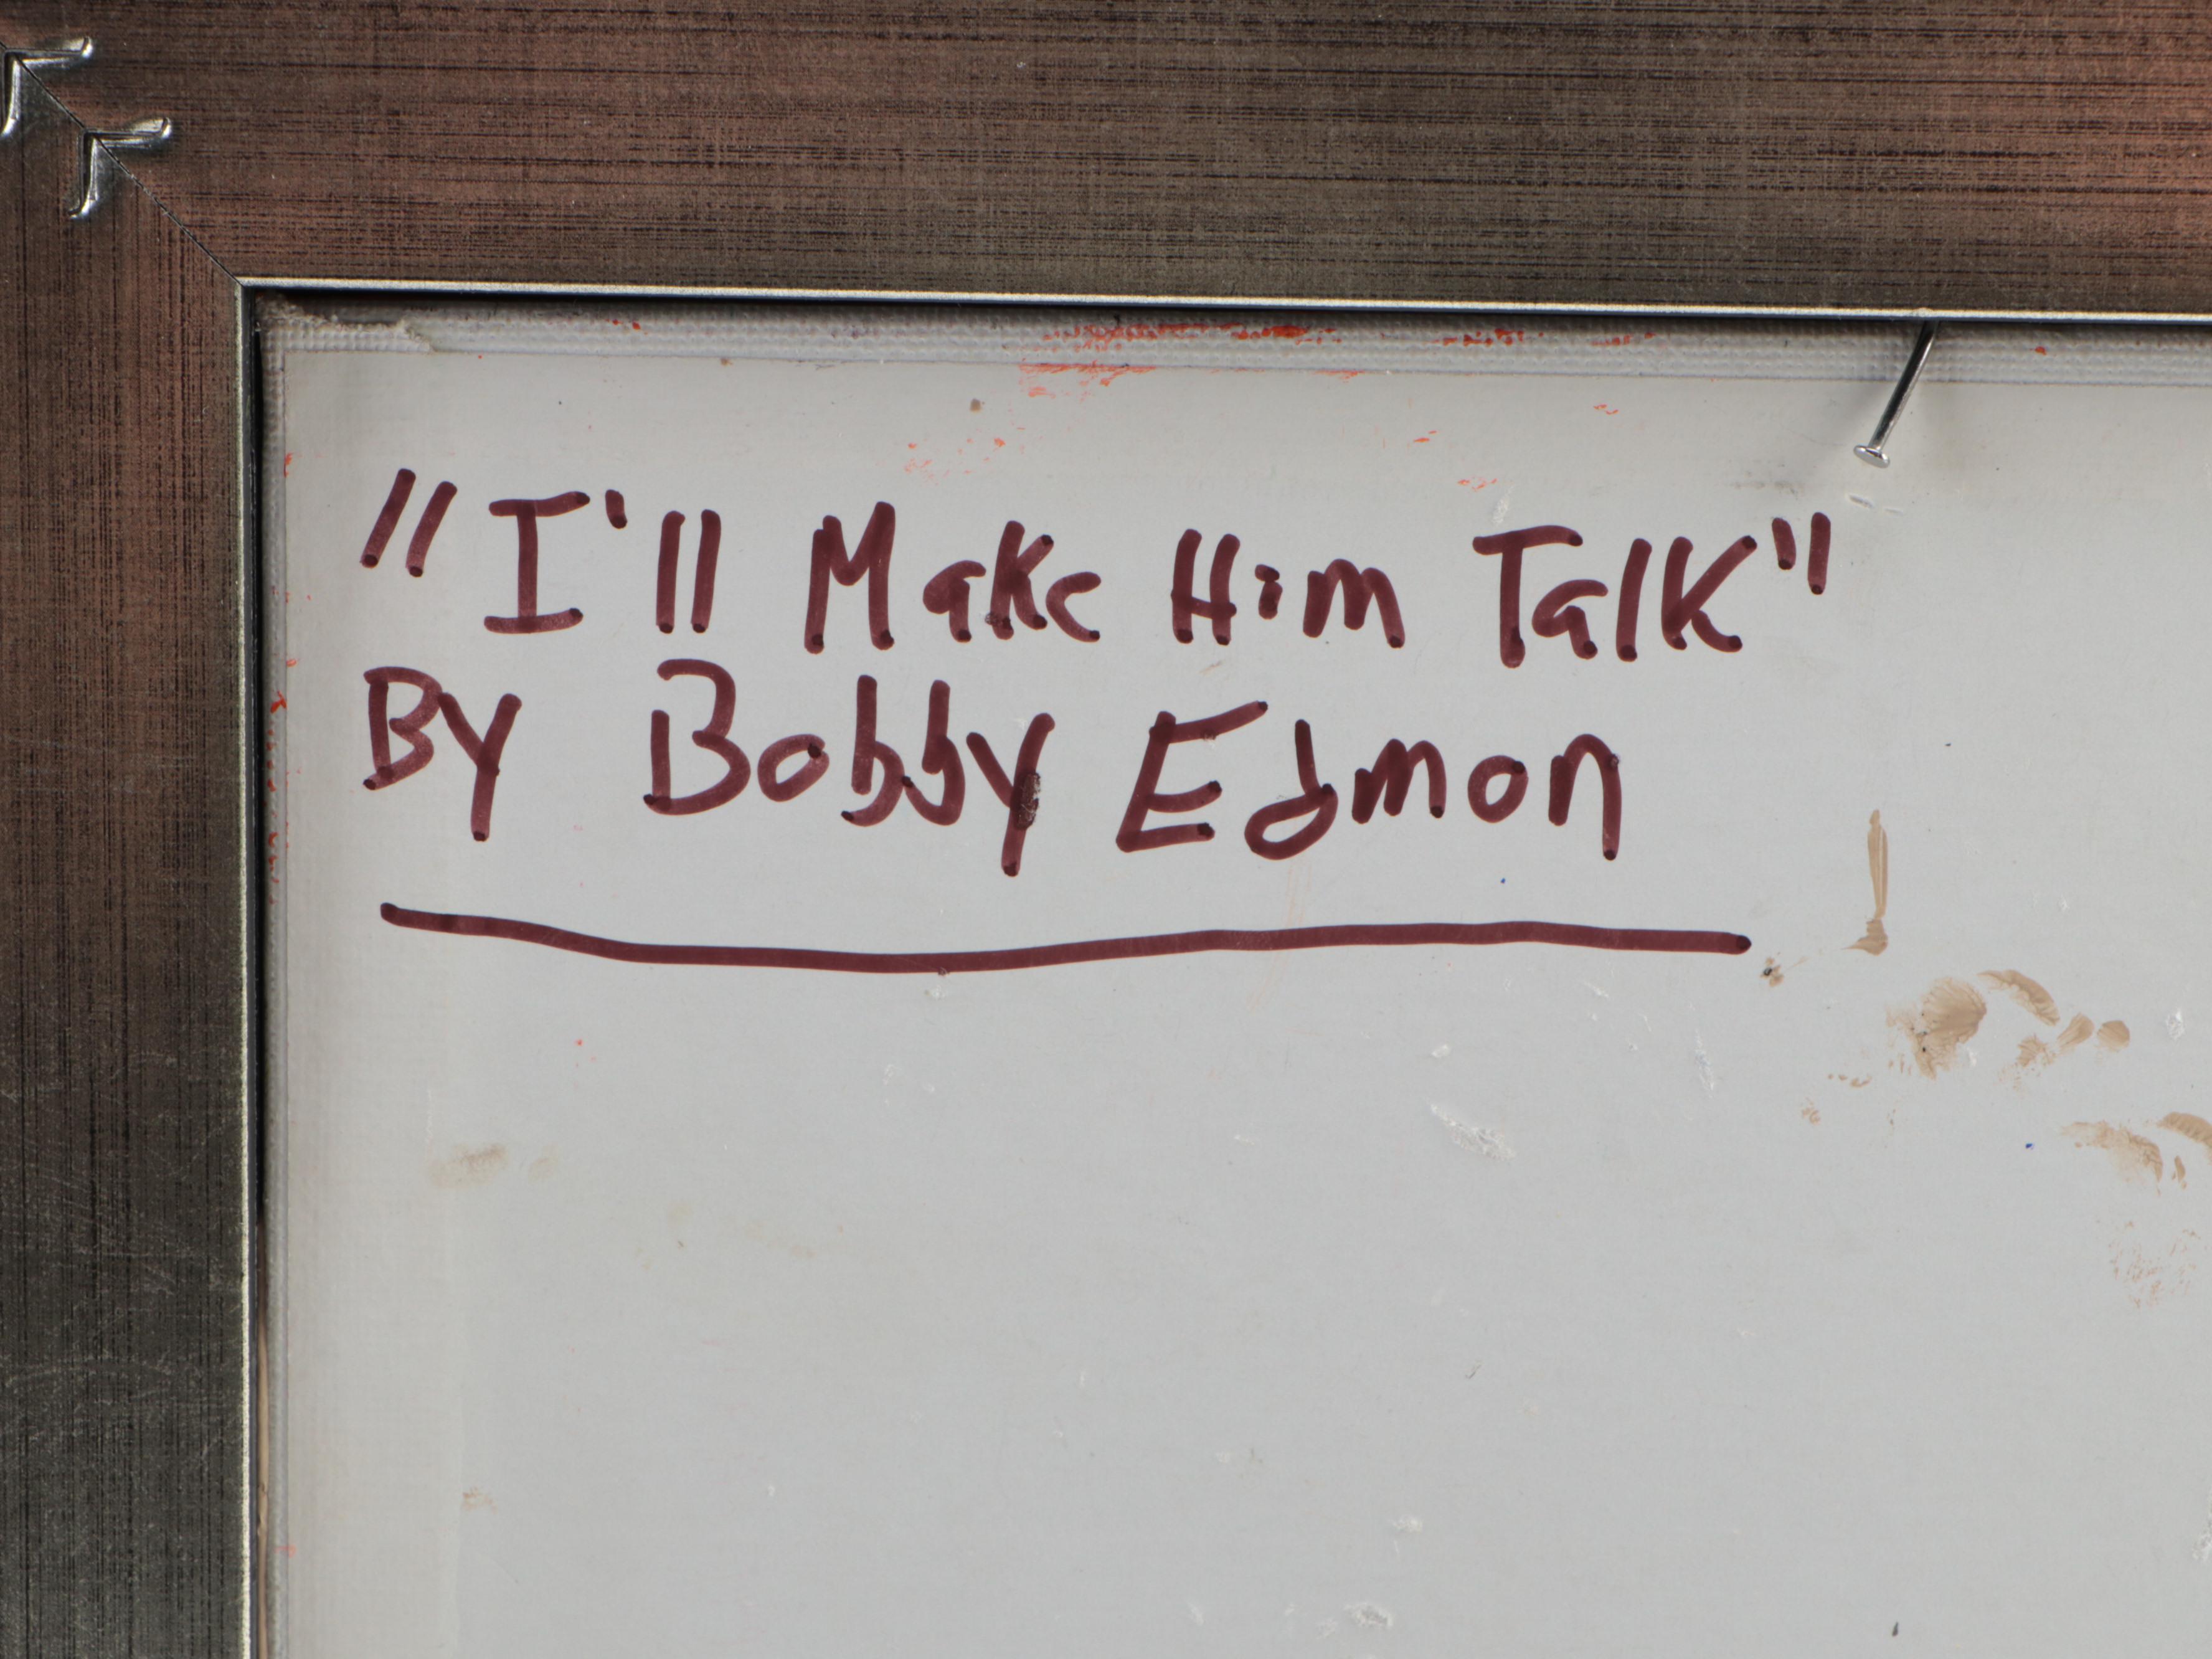 "I'll Make Him Talk"
By Bobby Edmon